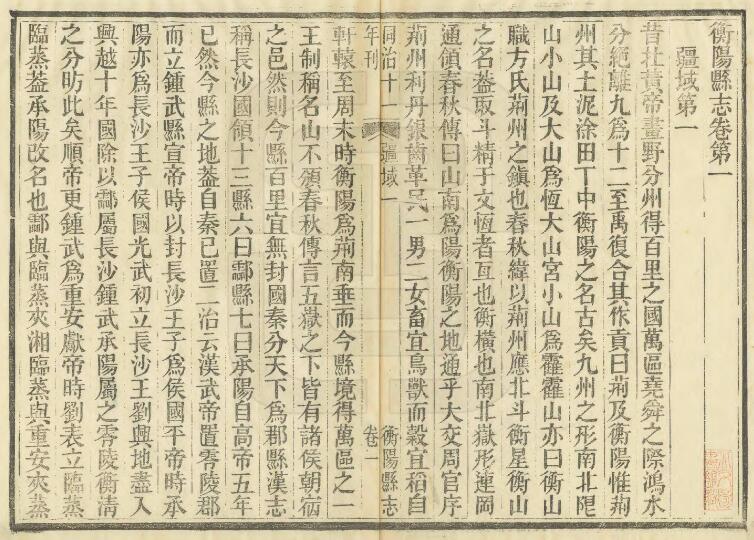 衡陽縣志卷第一
疆域第一
昔杜黃帝畫野分州得百里之國萬區堯舜之際鴻水
分絕離九爲十二至禹復合其作貢曰荊及衡陽惟荊
州其土泥涂田丅中衡陽之名古矣九州之形南北隄
山小山及大山爲恆大山宮小山爲霍霍山亦曰衡山
職方氏荊州之鎮也春秋緯以荊州應北斗衡星衡山
之名葢取斗精于文恆者亙也衡橫也南北嶽形連岡
通領春秋傳曰山南爲陽衡陽之地通乎大交周官序
荊州利丹銀齒革民一男二女畜宜鳥獸而穀宜稻自
同治十一年刊
疆域一
卷一
衡陽縣志
軒轅至周末時衡陽爲荊南垂而今縣境得萬區之一
王制稱名山不頒春秋傳言五嶽之下皆有諸侯朝宿
之邑然則今縣百里宜無封國秦分天下爲郡縣漢志
稱長沙國領十三縣六曰酃縣七曰承陽自高帝五年
已然今縣之地葢自秦已置二治云漢武帝置零陵郡
而立鍾武縣宣帝時以封長沙王子爲侯國平帝時承
陽亦爲長沙王子侯國光武初立長沙王劉興地盡入
興越十年國除以酃屬長沙鍾武承陽屬之零陵衡淸
之分昉此矣順帝更鍾武爲重安獻帝時劉表立臨蒸
臨蒸葢承陽改名也酃與臨蒸夾湘臨蒸與重安夾蒸